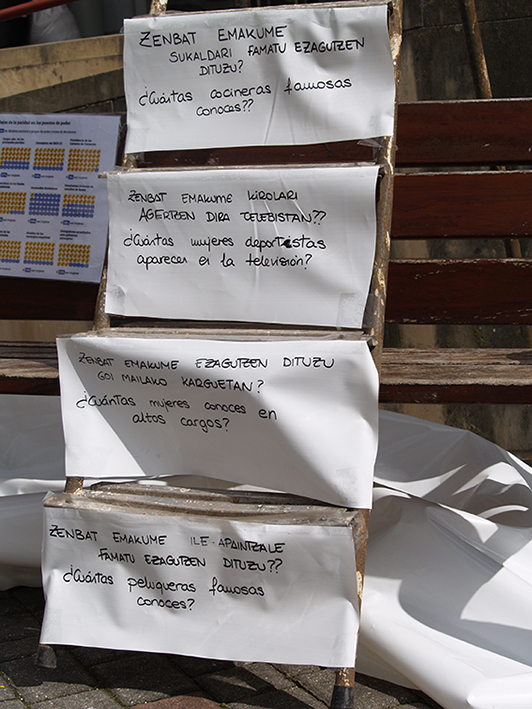 ZENBAT EMAKUME
SUKALDARI FAMATU EZAGUTZEN
DITUZU?
¿Cuántas cocineras famosas
conoces??
ZENBAT EMAKUME KIROLARI
AGERTZEN DIRA TELEBISTAN??
¿Cuántas mujeres deportistas
aparecen en la televisión?
ZENBAT EMAKUME EZAGUTZEN DITUZU
GOI MAILAKO KARGUETAN?
¿Cuántas mujeres conoces en
altos cargos?
ZENBAT EMAKUME ILE-APAINTZALE
FAMATU EZAGUTZEN DITUZU??
¿Cuántas peluqueras famosas
conoces?
de la paridad en los puestos de poder